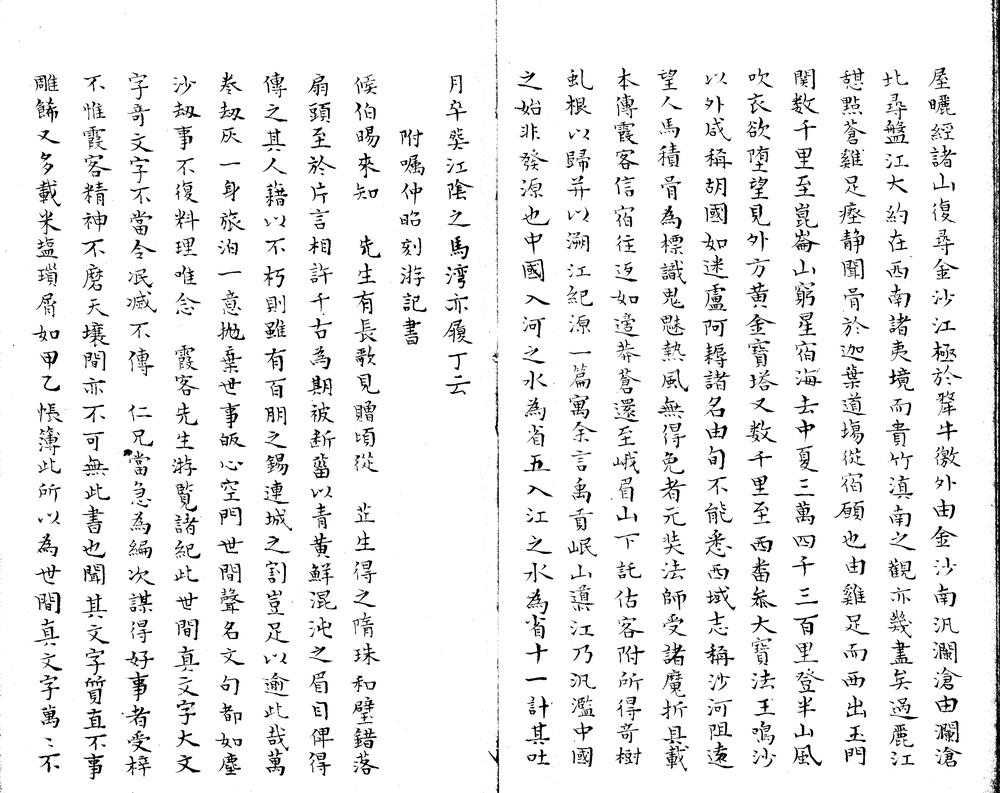 屋曬經諸山復尋金沙江極於犛牛徼外由金沙南汎瀾滄由瀾滄
北尋盤江大約在西南諸夷境而貴竹滇南之觀亦幾盡矣過麗江
憇點蒼雞足瘞静聞骨於迦葉道塲從宿願也由雞足而西出玉門
関数千里至崑崙山窮星宿海去中夏三萬四千三百里登半山風
吹衣欲堕望見外方黄金寳塔又数千里至西畨叅大寳法王鳴沙
以外咸稱胡國如迷盧阿耨諸名由旬不能悉西域志稱沙河阻遠
望人馬積骨為標識鬼魅熱風無得免者元奘法師受諸魔折具載
本傳霞客信宿往返如適莽蒼還至峨眉山下託估客附所得奇樹
虬根以歸并以溯江紀源一篇寓余言禹貢岷山導江乃汎濫中國
之始非發源也中國入河之水為省五入江之水為省十一計其吐
月卒塟江陰之馬湾亦履丁云
附嘱仲昭刻游記書
候伯暘來知 先生有長歌見贈頃從 芷生得之隋珠和璧錯落
扇頭至於片言相許千古為期被断菑以青黄鮮混沌之眉目俾得
傳之其人藉以不朽則雖有百朋之錫連城之割豈足以逾此哉萬
巻刼灰一身旅泊一意抛棄世事皈心空門世間聲名文句都如塵
沙刼事不復料理唯念 霞客先生游覧諸紀此世間真文字大文
字奇文字不當令泯滅不傳 仁兄當急為編次謀得好事者受梓
不惟霞客精神不磨天壤間亦不可無此書也聞其文字質直不事
雕餙又多載米塩瑣屑如甲乙帳簿此所以為世間真文字萬〻不